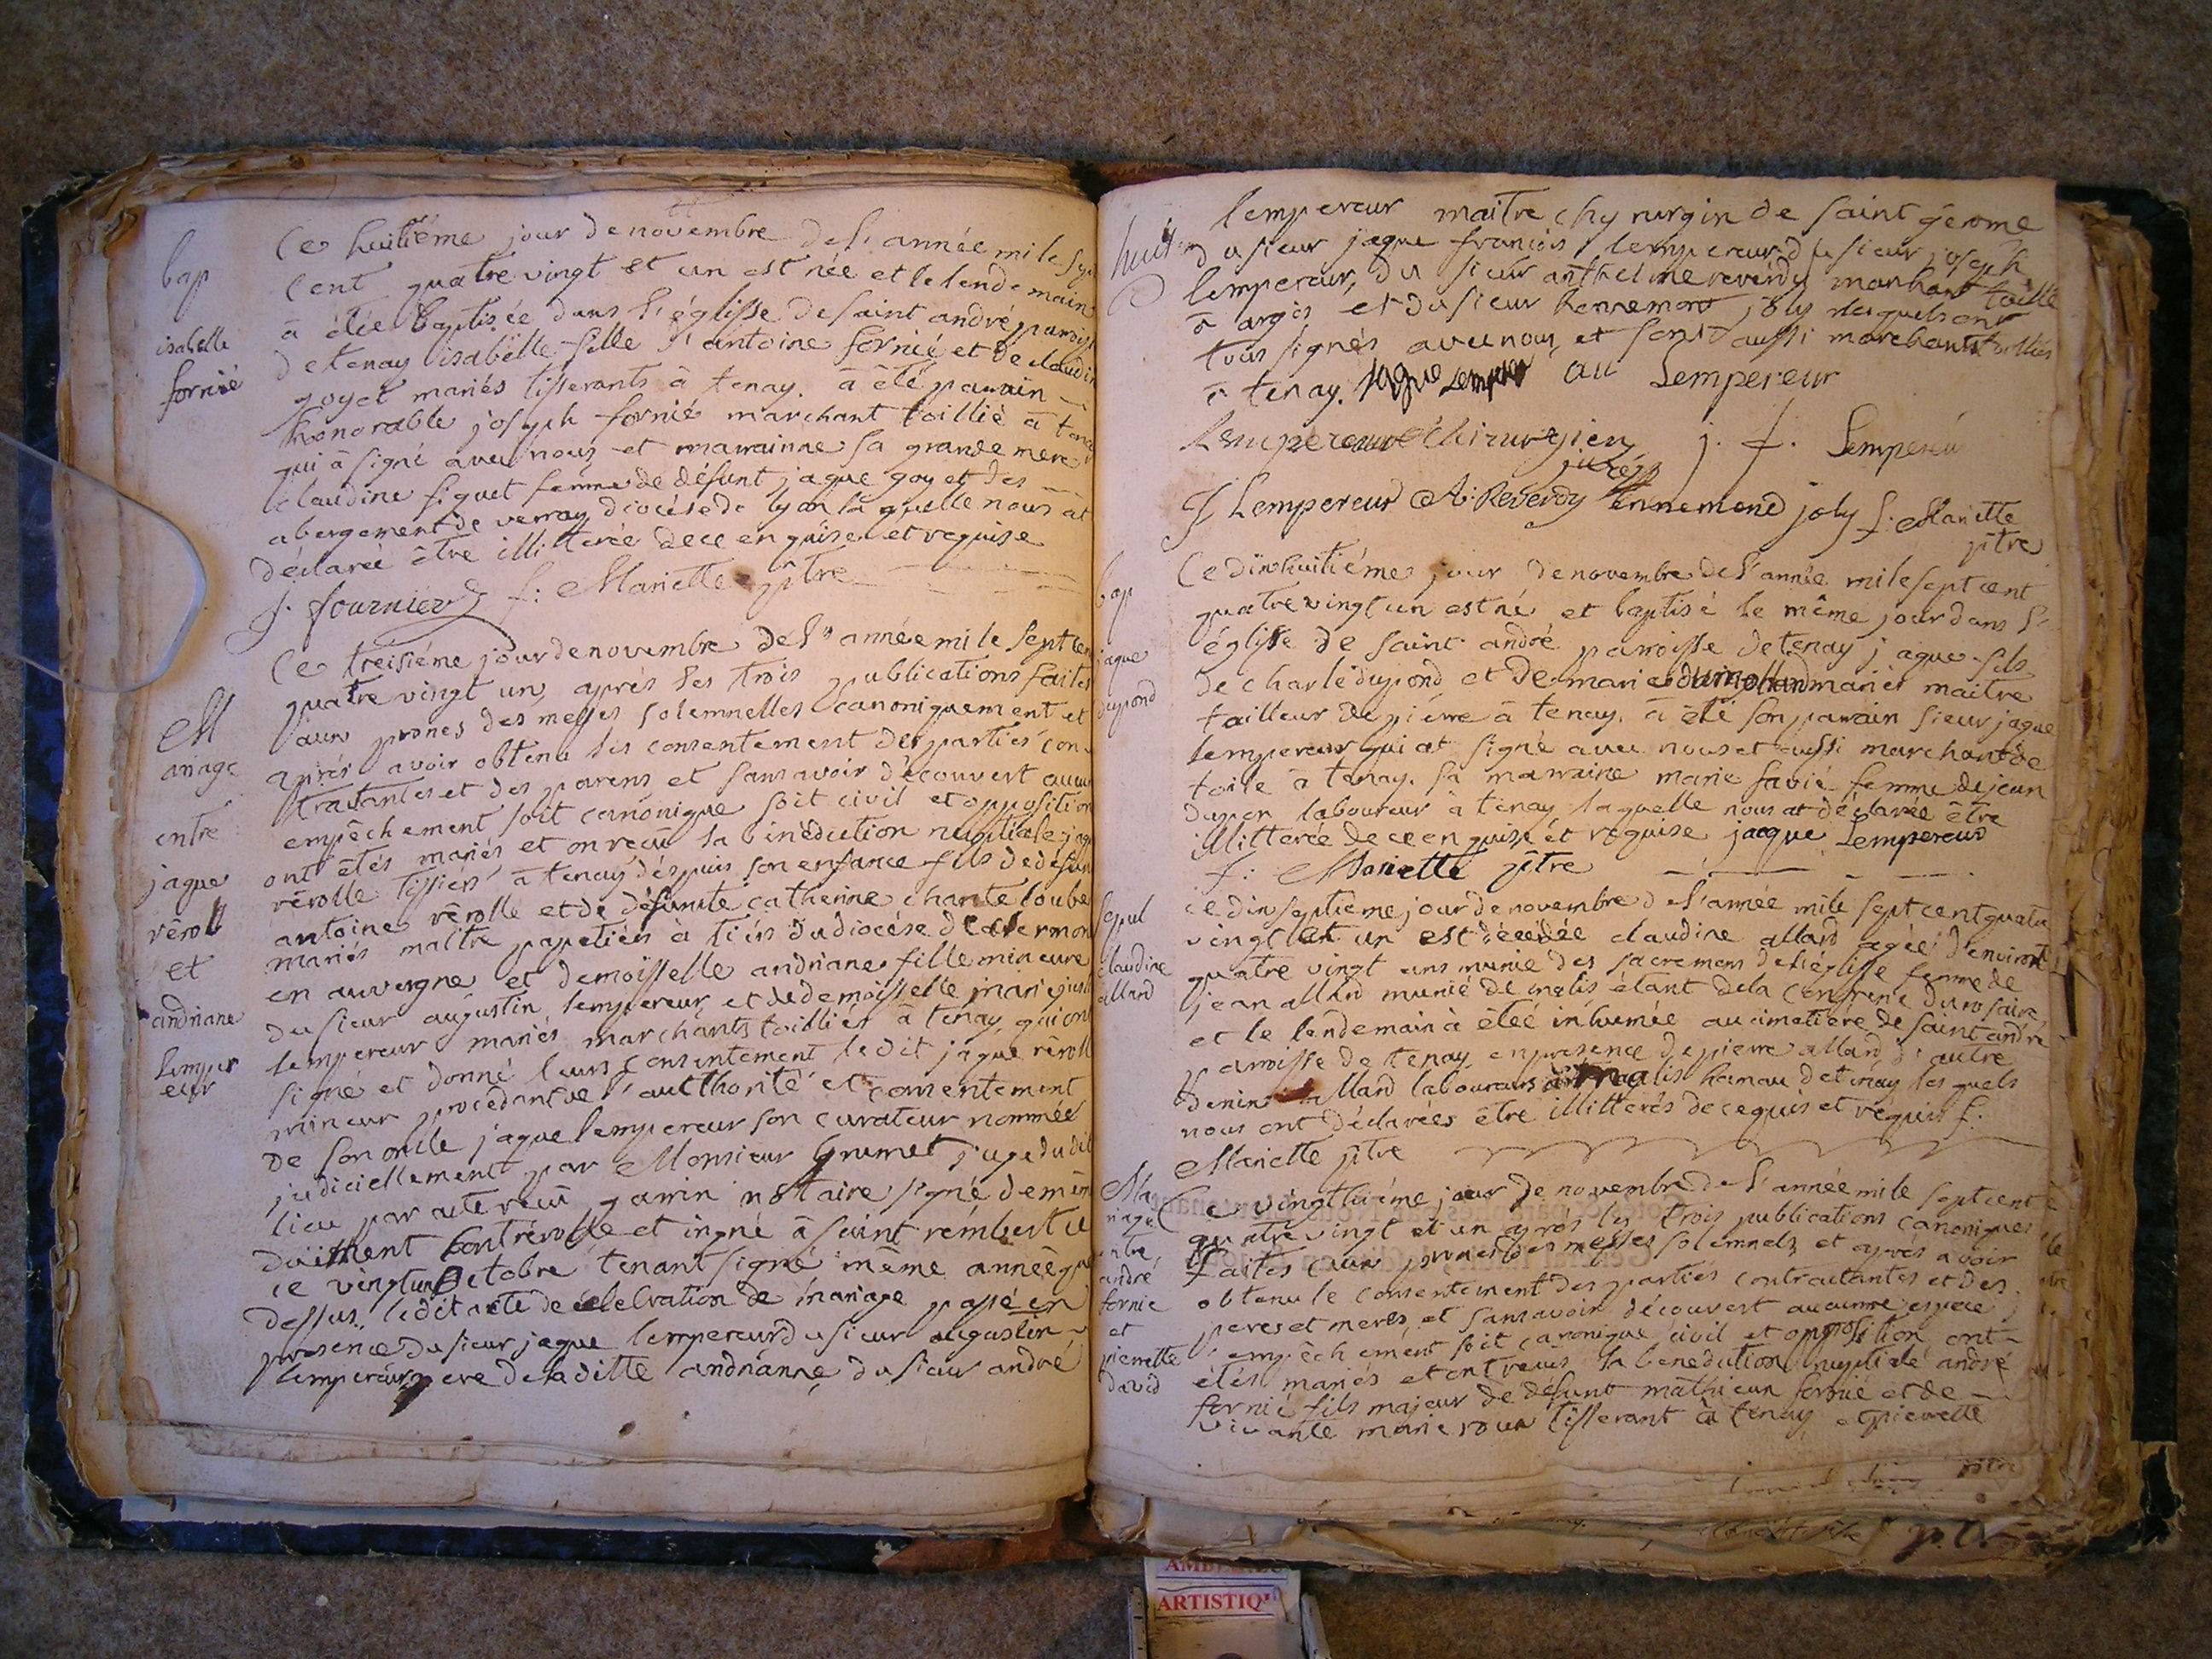 bap
isabelle
fornié
Ce huitiéme jour de novembre de l'année mile sep
cent quatre vingt et un est née et le lendemain
à étée baptisée dans l'églisse de saint andré paroiss
de tenay isabelle fille d'antoine fornié et de claudin
goyet mariés tisserants à tenay. à été parrain
honorable joseph fornié marchant toillié à tenay
qui à signé avec nous et marrainne sa grande mere
claudine figuet femme de défunt jaque goyet des
abergement de verray diocése de lyon laquelle nous at
déclarée être illitterée de ce enquise et requise
J. fournier f: Mariette ptre
M
ariage
entre
jaque
vérolle
et
andriane
lemper
eur
Ce treisiéme jour de novembre de l'année mile sept cen
quatre vingt un, aprés les trois publications faites
aux prones des messes solemnelles canoniquement et
aprés avoir obtenu les consentement des parties con
tractantes et des parens et sans avoir découvert aucun
empêchement soit canonique soit civil et opposition
ont êtés mariés et on recu la bénédiction nuptiale jaqu
vérolle tissiér à tenay dépuis son enfance fils de défun
antoine vérolle et de défunte catherine chante loube
mariés maître papetiér à tiér du diocése de clermon
en auvergne et demoisselle andriane fille mineure
du sieur augustin lempereur et de demoisselle marie
lempereur mariés marchants toilliér à tenay, qui ont
signé et donné leurs consentement le dit jaque vérolle
mineur procédant de l'autthorité et consentement
de son oncle jaque lempereur son curateur nommée
judiciellement par Monsieur Grumet juge dudit
lieu par acte recu garin notaire signé de même
duëment contrérollé et insiné à saint rembert le
ce vingt un octobre tenant signé même année que
dessus ledit acte de celebration de mariage passé en
présence du sieur jaque lempereur du sieur augustin
lempereur pere de la ditte andrianne, du sieur andré
lempereur maître chyrurgin de saint gérome
du sieur jaque françois lempereur, du sieur joseph
lempereur, du sieur anthelme reverdy marchant toillié
à argis et du sieur hennemont joly lesquels ont
tous signés avec nous, et sont aussi marchants toilliés
à tenay. jaque Lempereur au Lempereur
Lempereur Chirurgien j. f. Lempereur
juré
J Lempereur A: Reverdy Ennemond joly f: Mariette
ptre
bap
jaque
dupond
Ce dixhuitiéme jour de novembre de l'année mile sept cent
quatre vingt un est né et baptisé le même jour dans l'
églisse de saint andré parroisse de tenay jaque fils
de charle dupond et de marie dumolland mariés maitre
tailleur de pierre à tenay. à été son parain sieur jaque
lempereur qui at signé avec nous et aussi marchant de
toile à tenay. sa marraine marie favié femme de jean
laboureur à tenay laquelle nous at déclarée être
illitterée de ce enquise et requise jacque Lempereur
f: Mariette ptre
sepul
claudine
allard
ce dix septieme jour de novembre de l'année mile sept cent quatre
vingt et un est décédée claudine allard agée d'environt
quatre vingt ans munie des sacremens de l'églisse femme de
jean allard de malis étant de la confrerie du rosaire
et le lendemain à étée inhumée au cimetiére de saint andré
paroisse de tenay en presence de pierre allard d'autre
allard laboureurs à malis hamau de tenay lesquels
nous ont déclarées être illitterés de ce quis et réquis f:
Mariette ptre
Ma
riage
entre
andré
fornié
et
pierrette
david
Ce vingtiéme jour de novembre de l'année mile sept cent
quatre vingt et un aprés les trois publications canoniques
faites aux prones des messes solemnels, et aprés avoir
obtenu le consentement des parties contractantes et des
peres et meres, et sans avoir découvert aucunne espece
d'empêchement soit canonique civil et opposition ont
êtés mariés et ont reçus la benediction nuptiale andré
fornié fils majeur de défunt mathieux fornié et de
vivante marie roux tisserant à tenay et pierrette
ARTISTIQU